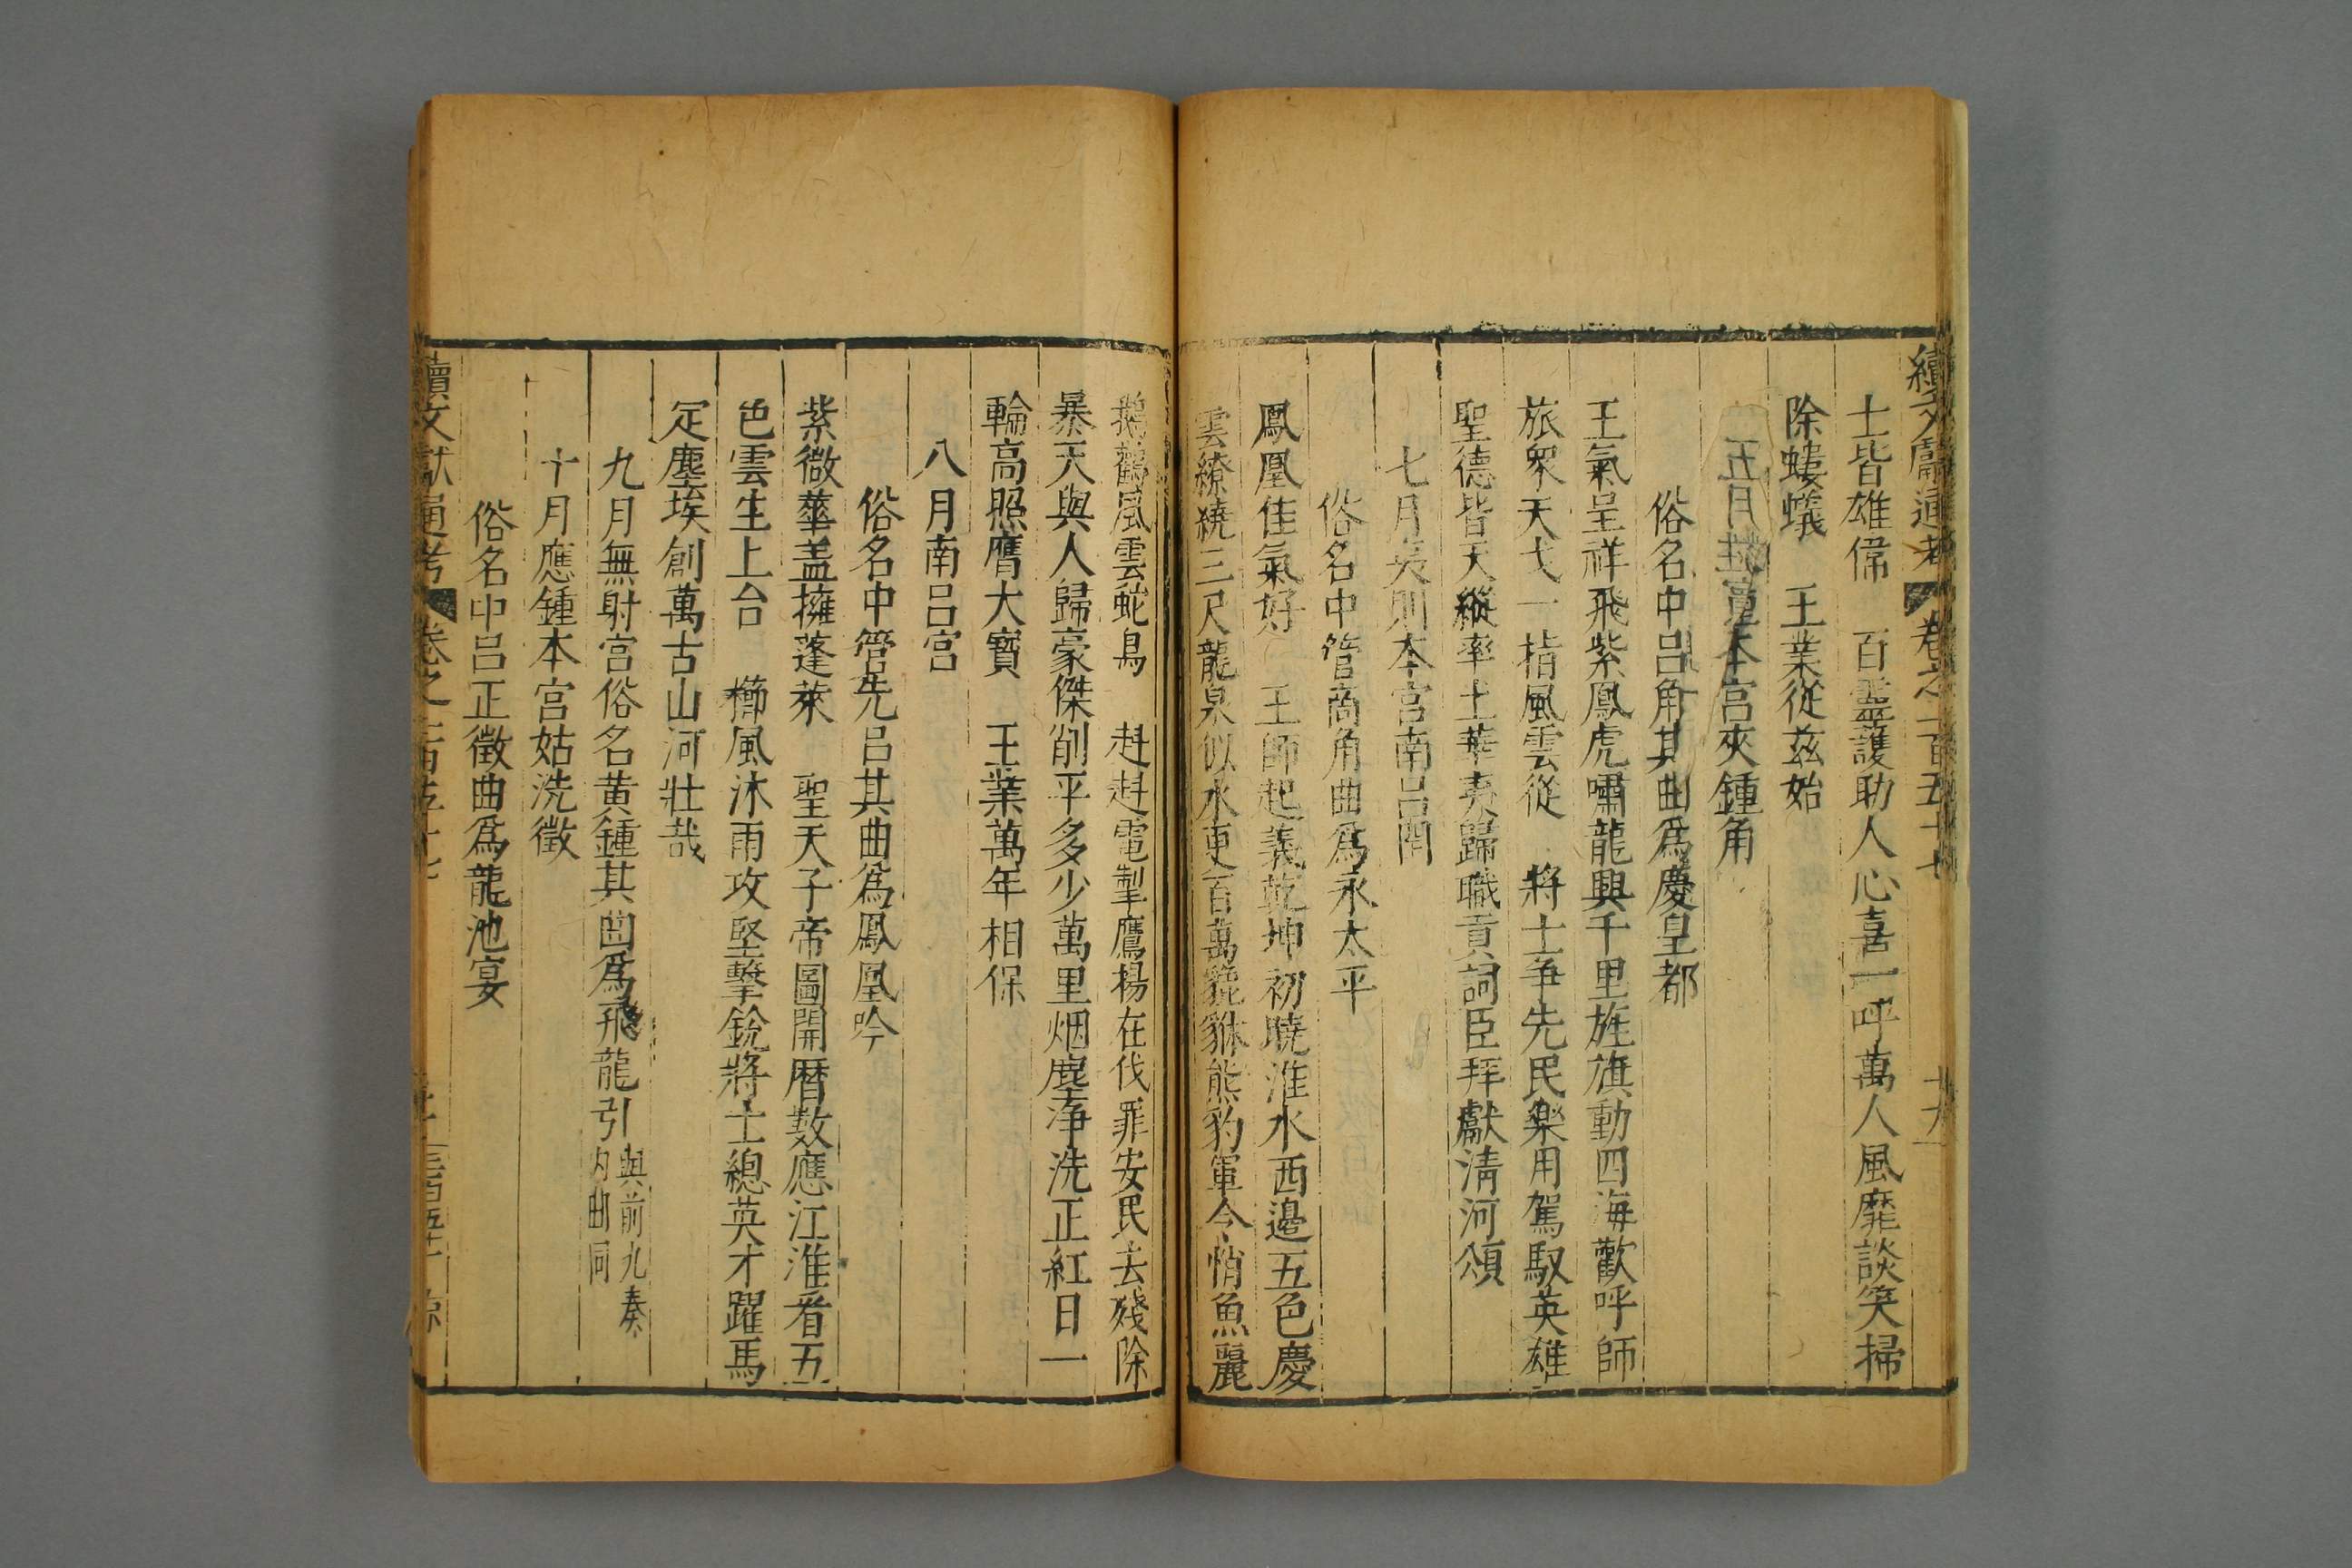 續文獻通考 卷之一百五十七 十六
士皆雄偉 百靈護助人心喜一呼萬人風靡談笑掃
除螻蟻 王業從茲始
五月蕤賔本宮夾鍾角
俗名中呂角其曲爲慶皇都
王氣呈祥飛紫鳳虎嘯龍興千里旌旗動四海歡呼師
旅衆天戈一指風雲從 將士爭先民樂用駕馭英雄
聖德皆天縱率土華夷歸職貢詞臣拜獻清河頌
七月夷則本宮南呂閏
俗名中管商角曲爲永太平
鳳凰佳氣好 王師起義乾坤初曉淮水西邊五色慶
雲繚繞三尺龍泉似水更百萬貔貅熊豹軍令悄魚麗
鵝鸛風雲蛇鳥 赳赳電掣鷹揚在伐罪安民去殘除
暴天與人歸豪傑削平多少萬里烟塵淨洗正紅日一
輪高照膺大寳 王業萬年相保
八月南呂宮
俗名中管先呂其曲爲鳳凰吟
紫微華盖擁蓬萊 聖天子帝圖開曆數應江淮看五
色雲生上台 櫛風沐雨攻堅擊銳將士總英才躍馬
定塵埃創萬古山河壯哉
九月無射宮俗名黃鍾其曲爲飛龍引與前九奏
内曲同
十月應鍾本宮姑洗徵
俗名中呂正徵曲爲龍池宴
續文獻通考 卷之一百五十七